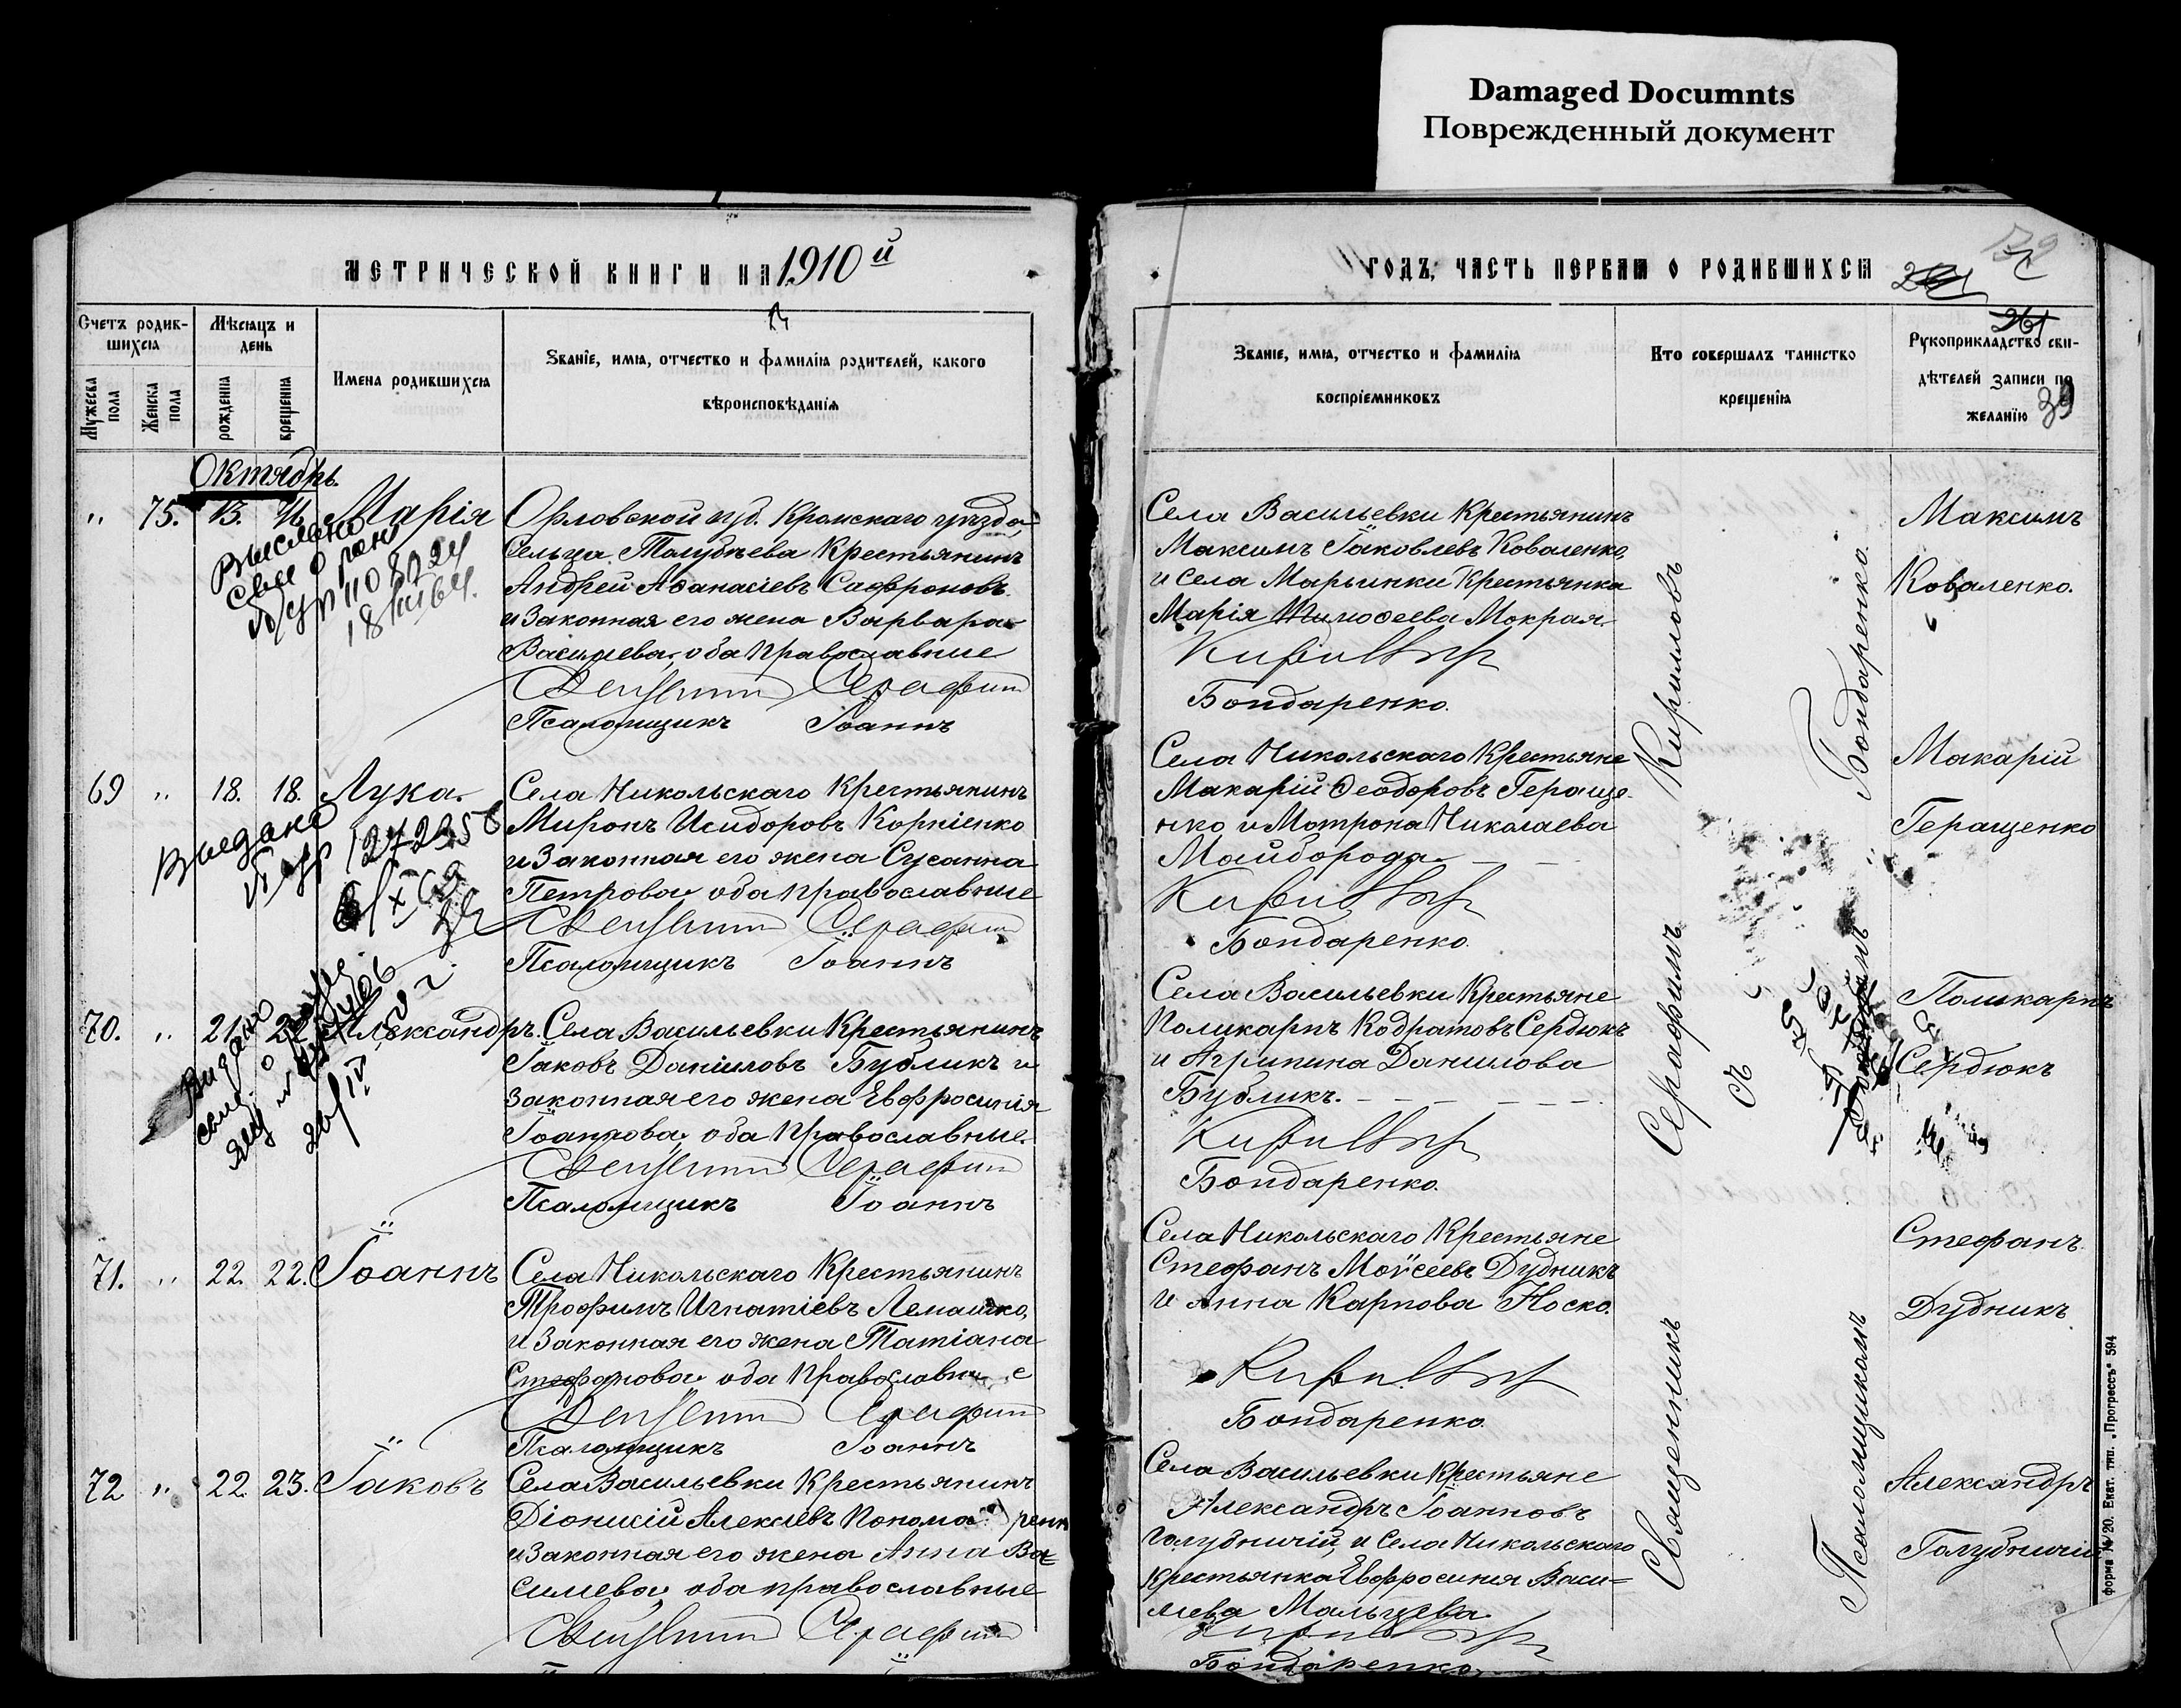 Damaged Documnts
Поврежденный документ
МЕТРИЧЕСКОЙ КНИГИ НА 1910 й
Счетъ родив-
шихся
Мѣсяцъ и
день
Мужеска
пола
Женска
пола
рожденія
крещенія
Имена родившихся
Званіе, имя, отчество и фамилія родителей, какого
вѣроисповѣданія
Октябрь.
" 75. 13. Марія
Орловской губ. Кромскаго уѣзда,
Сельца Крестьянинъ
Андрей Аѳанасіевъ Сафроновъ
и Законная его жена Варвара
Васильева, оба Православные
Священникъ Серафим
Псаломщикъ Іоаннъ
69 " 18. 18. Лука.
Выдано
Села Никольскаго Крестьянинъ
Миронъ Исидоровъ Корніенко
и Законная его жена Сусанна
Петрова оба православные
Священникъ Серафим
Псаломщикъ Іоаннъ
70. " 21. 22. Александръ.
Села Васильевки Крестьянинъ
Іаковъ Даніиловъ Бубликъ и
Законная его жена Евфросинія
Іоаннова, оба Православные.
Священникъ Серафим
Псаломщикъ Іоаннъ
71. " 22. 22. Іоаннъ
Села Никольскаго Крестьянинъ
Трофимъ Игнатіевъ Лемешко,
и Законная его жена Татіана
Стефанова оба Православные
Священникъ Серафим
Псаломщикъ Іоаннъ
72 " 22. 23. Іаковъ
Села Васильевки Крестьянинъ
Діонисій Алексіевъ
и Законная его жена Анна Ва=
силева, оба православные
Священникъ Серафим
ГОДЪ, ЧАСТЬ ПЕРВАЯ О РОДИВШИХСЯ
Званіе, имя, отчество и фамилія
воспріемниковъ
Кто совершалъ таинство
крещенія
Рукоприкладство сви-
дѣтелей записи по
желанію
39
Села Васильевки Крестьянинъ
Максимъ Іаковлевъ Коваленко,
и Села Марьинки Крестьянка
Марія Тимоѳеева Мокрая.
Кириллов
Бондаренко.
Максимъ
Коваленко.
Села Никольскаго Крестьяне
Макарій Ѳеодоровъ Гераще-
нко и Мотрона Николаева
Майборода
Кириллов
Бондаренко.
Макарій
Геращенко
Села Васильевки Крестьяне
Поликарпъ Кодратовъ Сердюкъ
и Агрипина Данилова
Бубликъ.
Кириллов
Бондаренко.
Поликарпъ
Сердюкъ
Села Никольскаго Крестьяне
Стефанъ Моѵсеевъ Дудникъ
и Анна Карпова Носко.
Кириллов
Бондаренко.
Стефанъ
Дудникъ
Села Васильевки Крестьяне
Александръ Іоанновъ
Голубничій, и Села Никольскаго
крестьянка Евфросинія Васи=
лиева Мальцева.
Кириллов
Бондаренко
Александръ
Голубничій
Священникъ Серафимъ Кирилловъ
съ
Псаломщикомъ Бондаренко.
форма № 20. Екат. тип. „Прогрессъ" 594